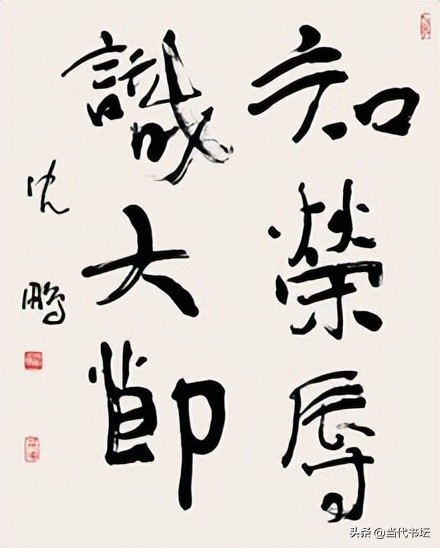 知榮辱
識大節
沈鵬
头条 @当代书坛